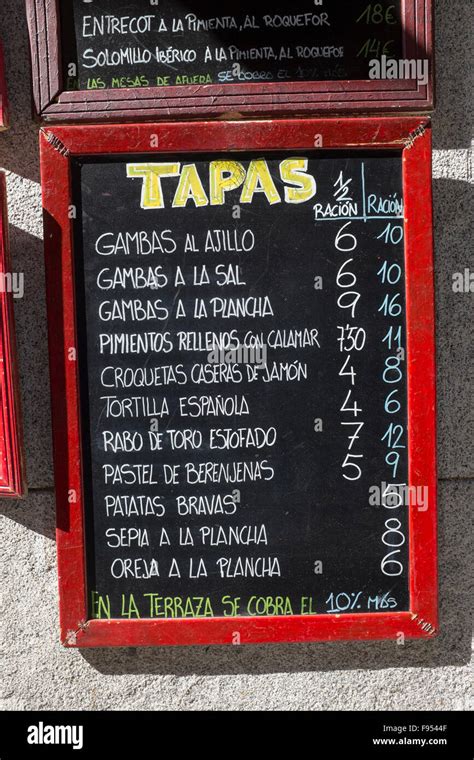 ENTRECOT A LA PIMIENTA, AL ROQUEFOR 18€
SOLOMILLO IBÉRICO A LA PIMIENTA, AL ROQUEFOR 14€
EN LAS MESAS DE AFUERA SE COBRA EL 10% MÁS
TAPAS
½ RACIÓN RACIÓN
GAMBAS AL AJILLO 6 10
GAMBAS A LA SAL 6 10
GAMBAS A LA PLANCHA 9 16
PIMIENTOS RELLENOS CON CALAMAR 7'50 11
CROQUETAS CASERAS DE JAMÓN 4 8
TORTILLA ESPAÑOLA 4 6
RABO DE TORO ESTOFADO 7 12
PASTEL DE BERENJENAS 5 9
PATATAS BRAVAS 5
SEPIA A LA PLANCHA 8
OREJA A LA PLANCHA 6
EN LA TERRAZA SE COBRA EL 10% MÁS
alamy
Image ID: F9544F
www.alamy.com